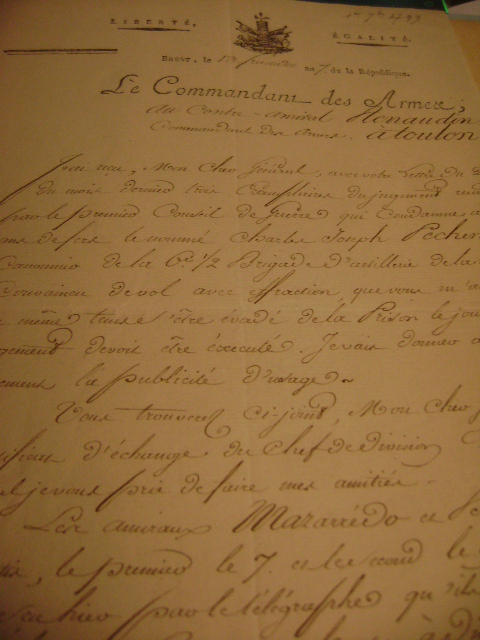 LIBERTÉ.
ÉGALITÉ.
BREST, le an 7. de la République.
Le Commandant des Armes,
au Contre-amiral
Commandant des armes. à toulon
J'ai reçu, Mon cher Général, avec votre Lettre du
du mois dernier trois Exemplaires du jugement
par le premier Conseil de Guerre qui Condamne, a
de fers le nommé Charles Joseph
Canonnier de la 6e. 1/2 Brigade d'artillerie de la
Convaincu de vol avec effraction, que vous m'a
même tems s'être évadé de la Prison le jour
devoit être éxécuté. Je vais donner
la publicité d'usage.
Vous trouverez ci-joint, Mon cher
d'échange du chef de division
je vous prie de faire mes amitiés.
Les amiraux Mazarrédo et
le premier le 7. et le second le
hier par le télégraphe qu'ils